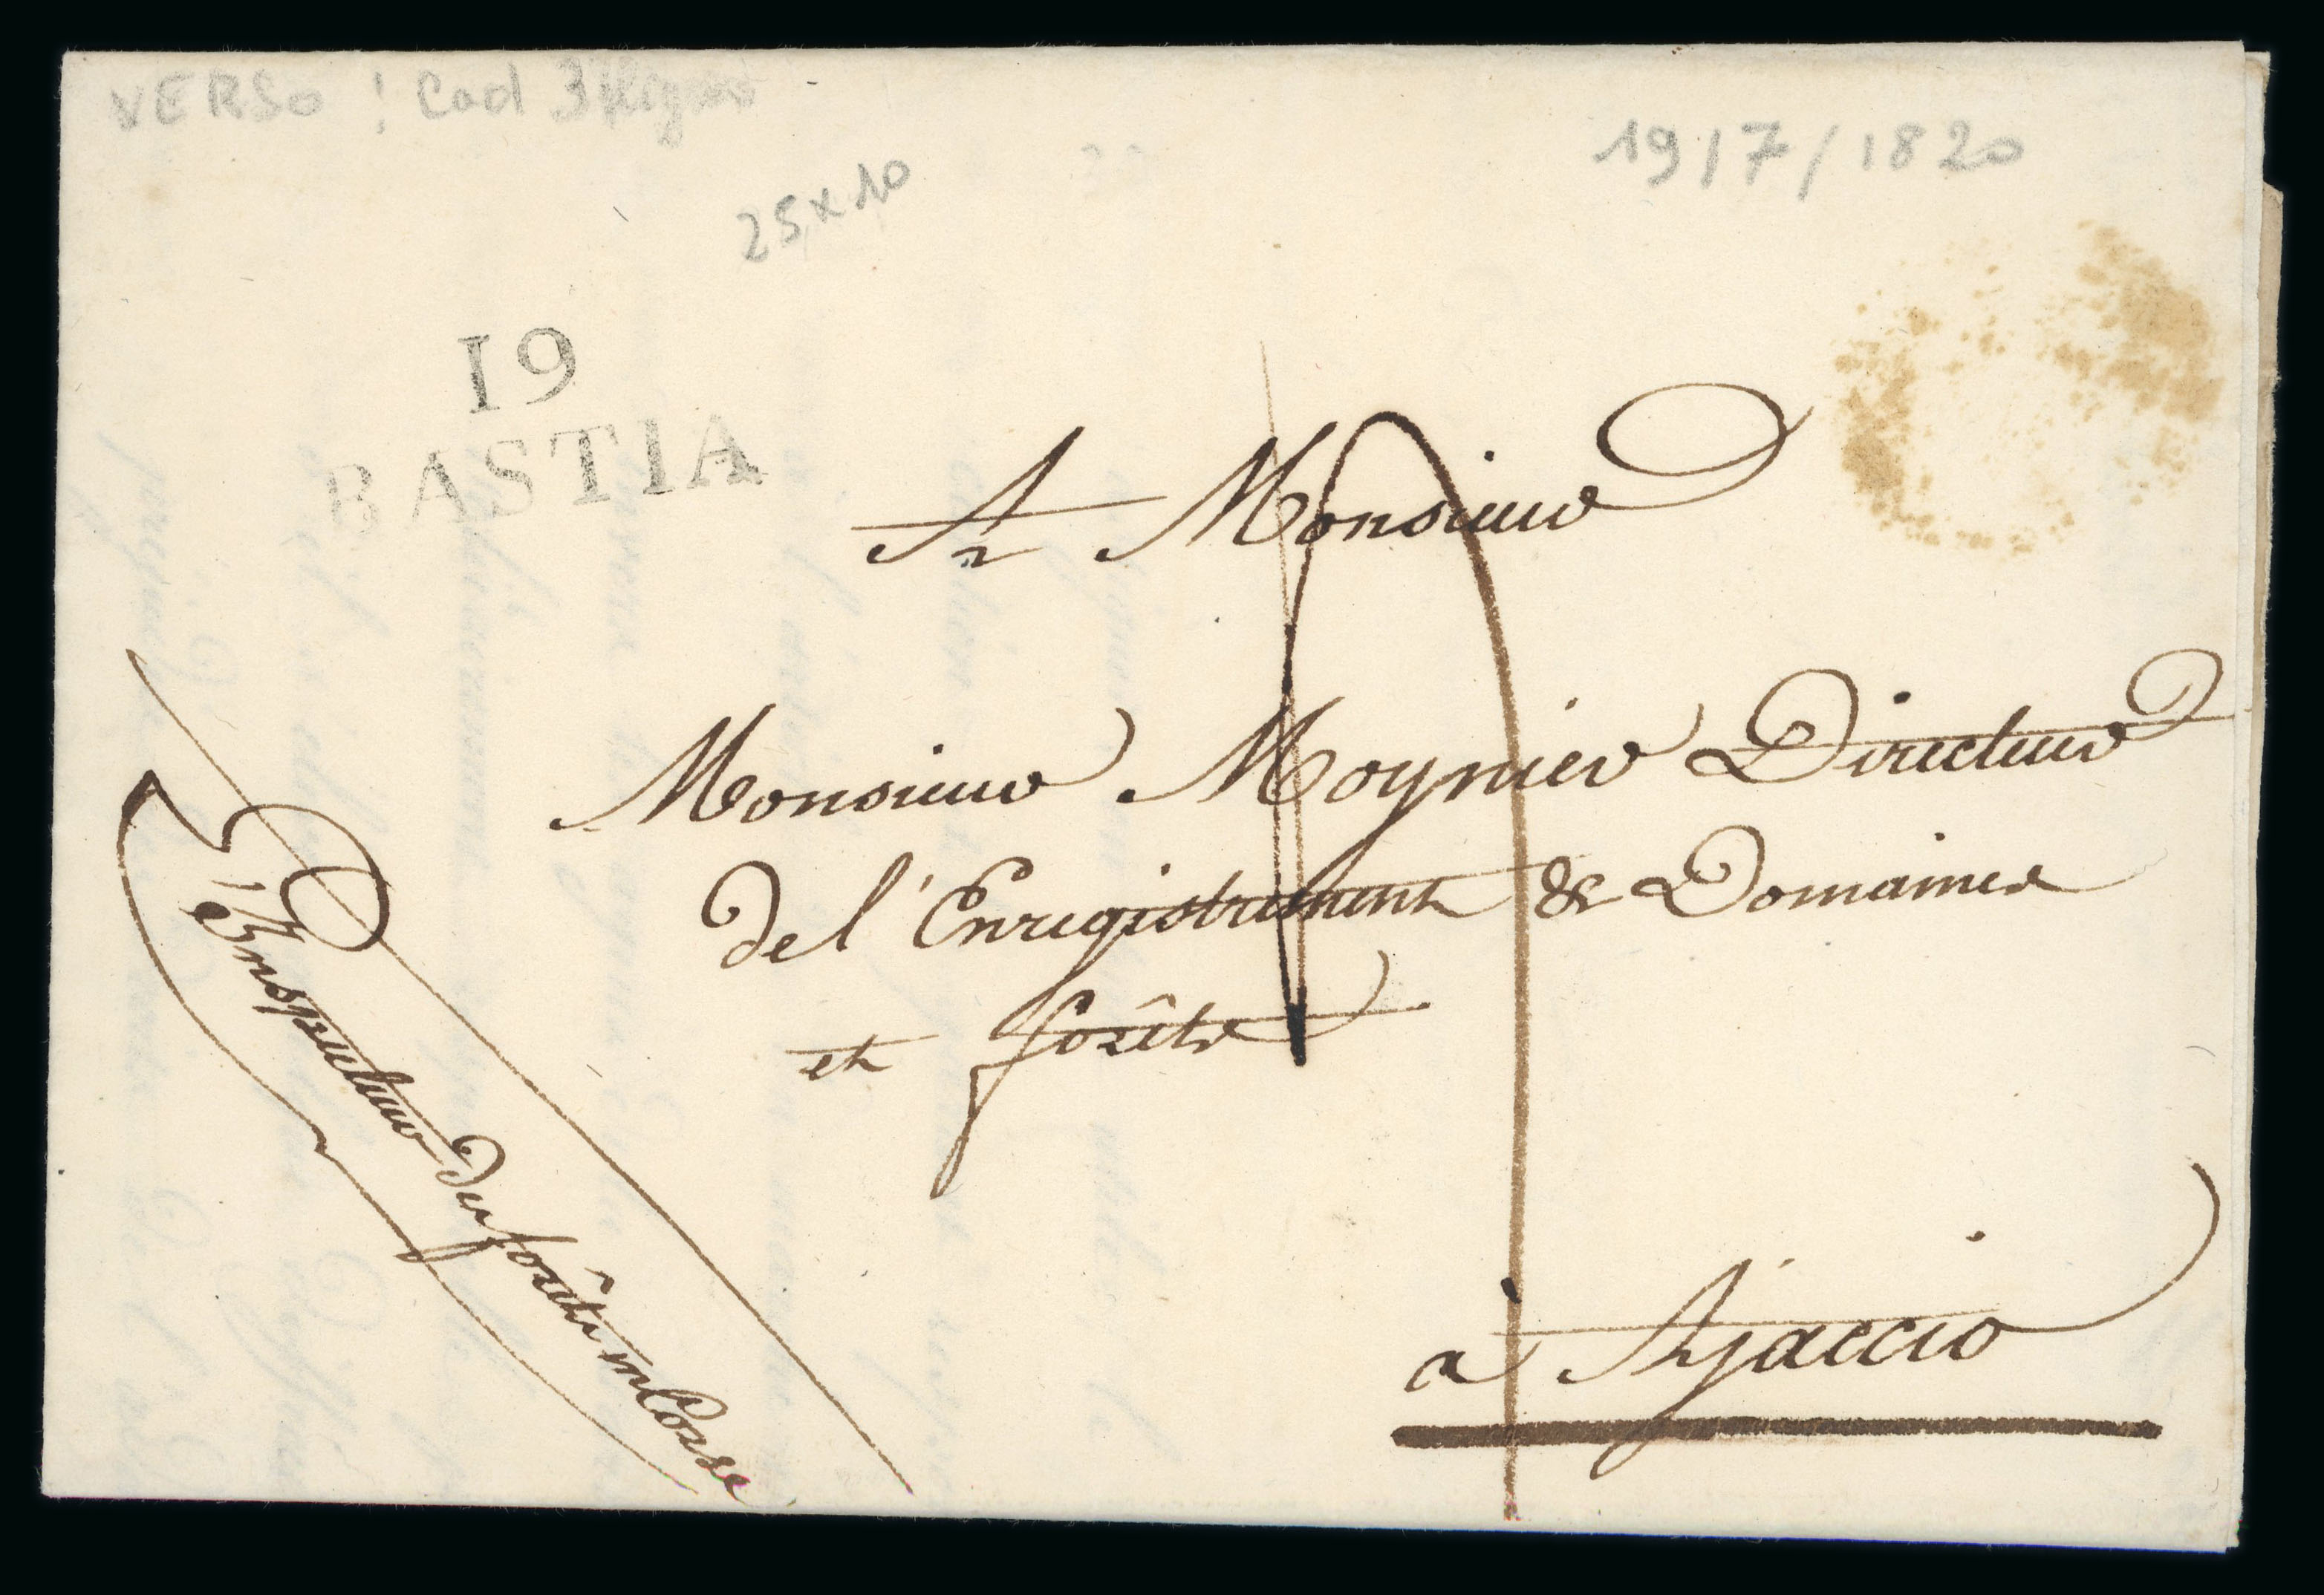 VERSO : Cad 3 lignes
19/7/1820
25x10
19
BASTIA
A Monsieur
Monsieur Moynier Directeur
de l'Enregistrement & Domaines
et forêts
à Ajaccio
L'Inspecteur des forêts en Corse